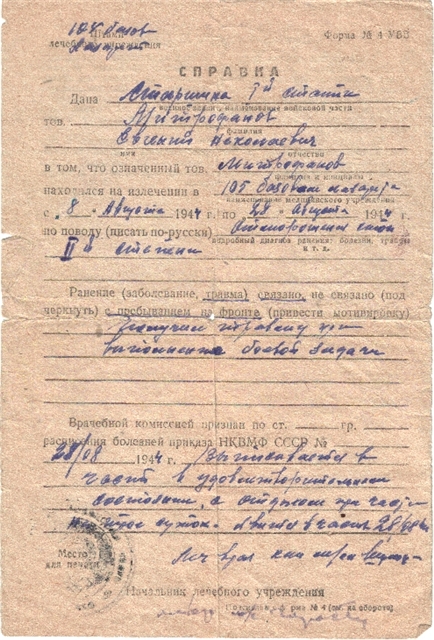 Штамп
лечебного учреждения
Форма № 4 УВЗ
СПРАВКА
Дана Старшина 1й статьи
воинское звание, наименование войсковой части
тов. Митрофанов
фамилия
Евгений Николаевич
имя отчество
в том, что означенный тов. Митрофанов
фамилия и инициалы
находился на излечении в 105 базовом лазарете
наименование медицинского учреждения
с „8„ Августа 1944 г по 28 „Августа 1944 г.
по поводу (писать по-русски)
подробный диагноз ранения, болезни, травмы
и т. д.
IIй степени
Ранение (заболевание, травма) связано, не связано (под
черкнуть) с пребыванием на фронте (привести мотивировку)
Получил травму при
выполнении боевой задачи
Врачебной комиссией признан по ст. гр.
расписания болезней приказа НКВМФ СССР №
28/08 1944 г. Выписывается в
часть в удовлетворительном
состоянии, с отдыхом при части
суток. Явиться в часть 28.08.44
Место
для печати
Леч врач
Начальник лечебного учреждения
№ 4 (см. на обороте)